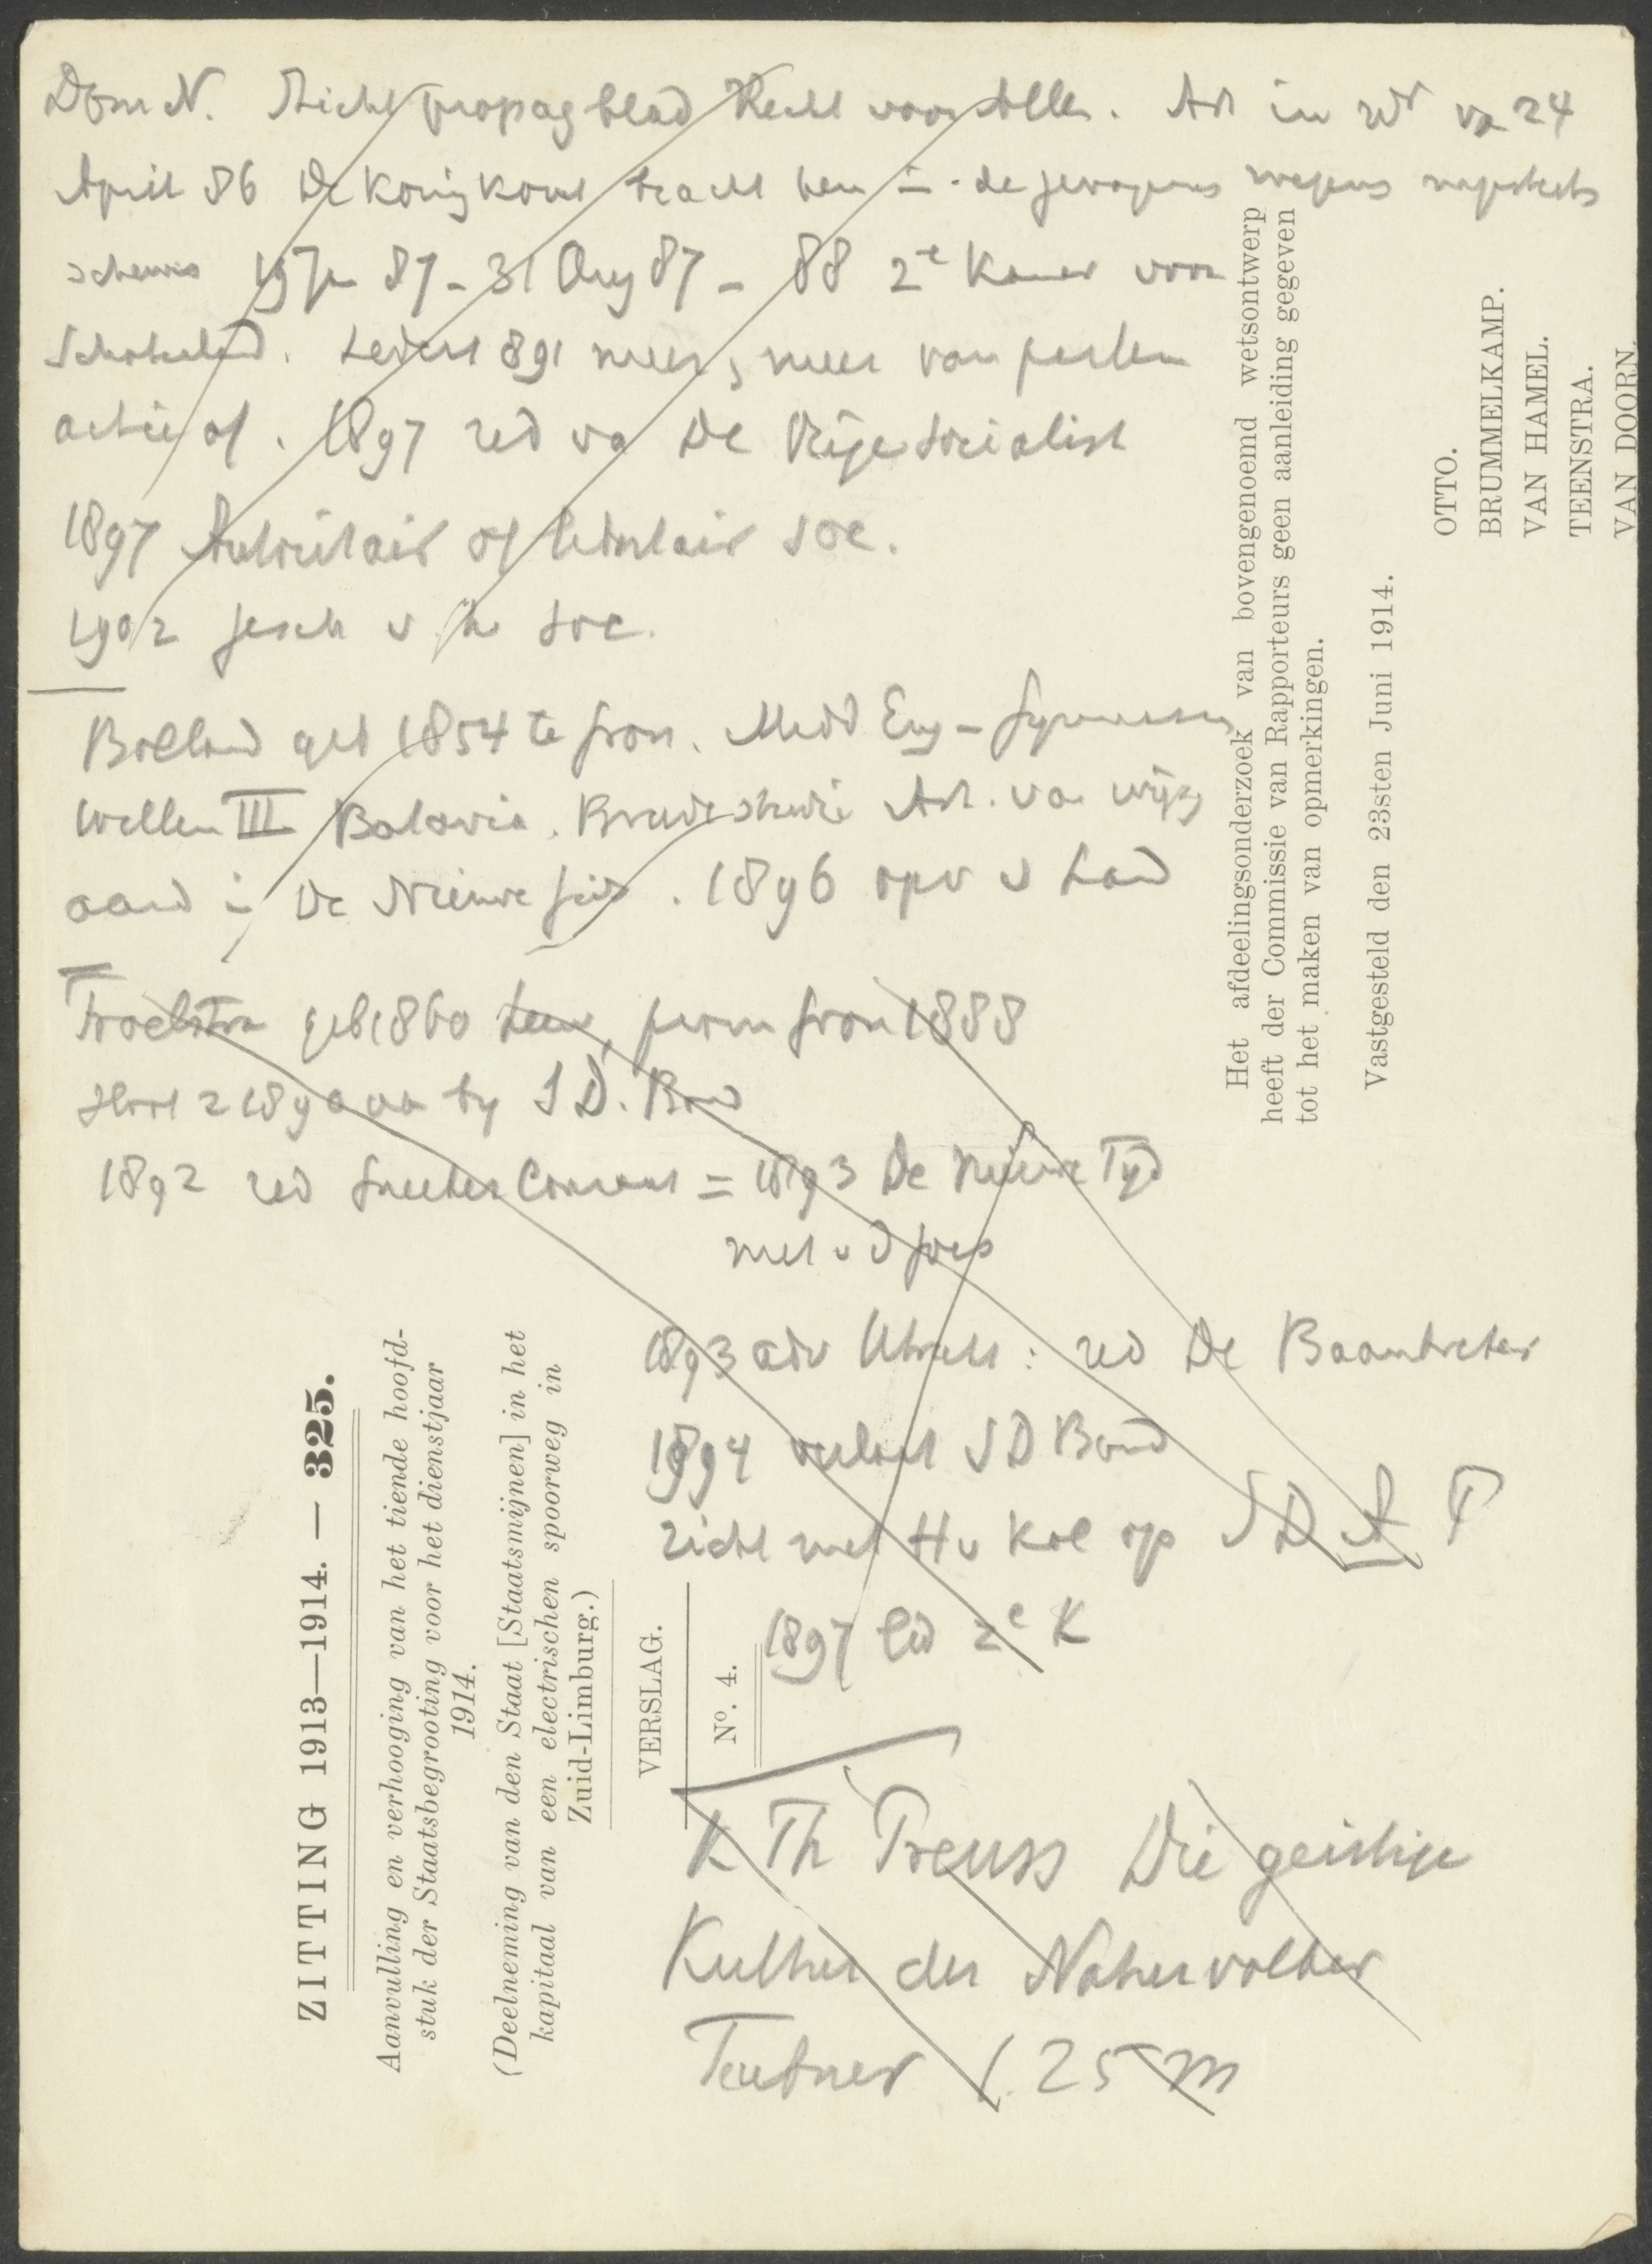 Dom N. Sticht propag blad Recht voor Allen. Art in Wr va 24
April 86 De Koning komt bracht hem in de gevangenis wegens majesteits
schennis 19 Jan 87 - 31 Aug 87 - 88 2e Kamer voor
Schoterland. Sedert 891 meer & meer van parlem
actie af. 1897 red va De Vrije Socialist
1897 Autoritair of libertair soc.
1902 gesch v h soc.
Bolland geb 1854 te Gron. Eng - Gymnasium
Willem III Batavia. Brede studie Art. va wijsg
aard in De Nieuwe Gids. 1896 opv v Land
Troelstra geb 1860 Leeuw, prom Gron 1888
1890 va by S D. Bond
1892 red Sneeker Courant = 1893 De Nieuwe Tyd
met v d Goes
1893 adv Utrecht: red De Baanbreker
1894 verlaat S D Bond
richt met H v Kol op S D A P
1897 lid 2e K
K Th Preuss Die geistige
Kultur der Naturvolker
Teubner 1.25 m
ZITTING 1913—1914. — 325.
Aanvulling en verhooging van het tiende hoofd-
stuk der Staatsbegrooting voor het dienstjaar
1914.
(Deelneming van den Staat [Staatsmijnen] in het
kapitaal van een electrischen spoorweg in
Zuid-Limburg.)
VERSLAG.
No. 4.
Het afdeelingsonderzoek van bovengenoemd wetsontwerp
heeft der Commissie van Rapporteurs geen aanleiding gegeven
tot het maken van opmerkingen.
Vastgesteld den 23sten Juni 1914.
OTTO.
BRUMMELKAMP.
VAN HAMEL.
TEENSTRA.
VAN DOORN.